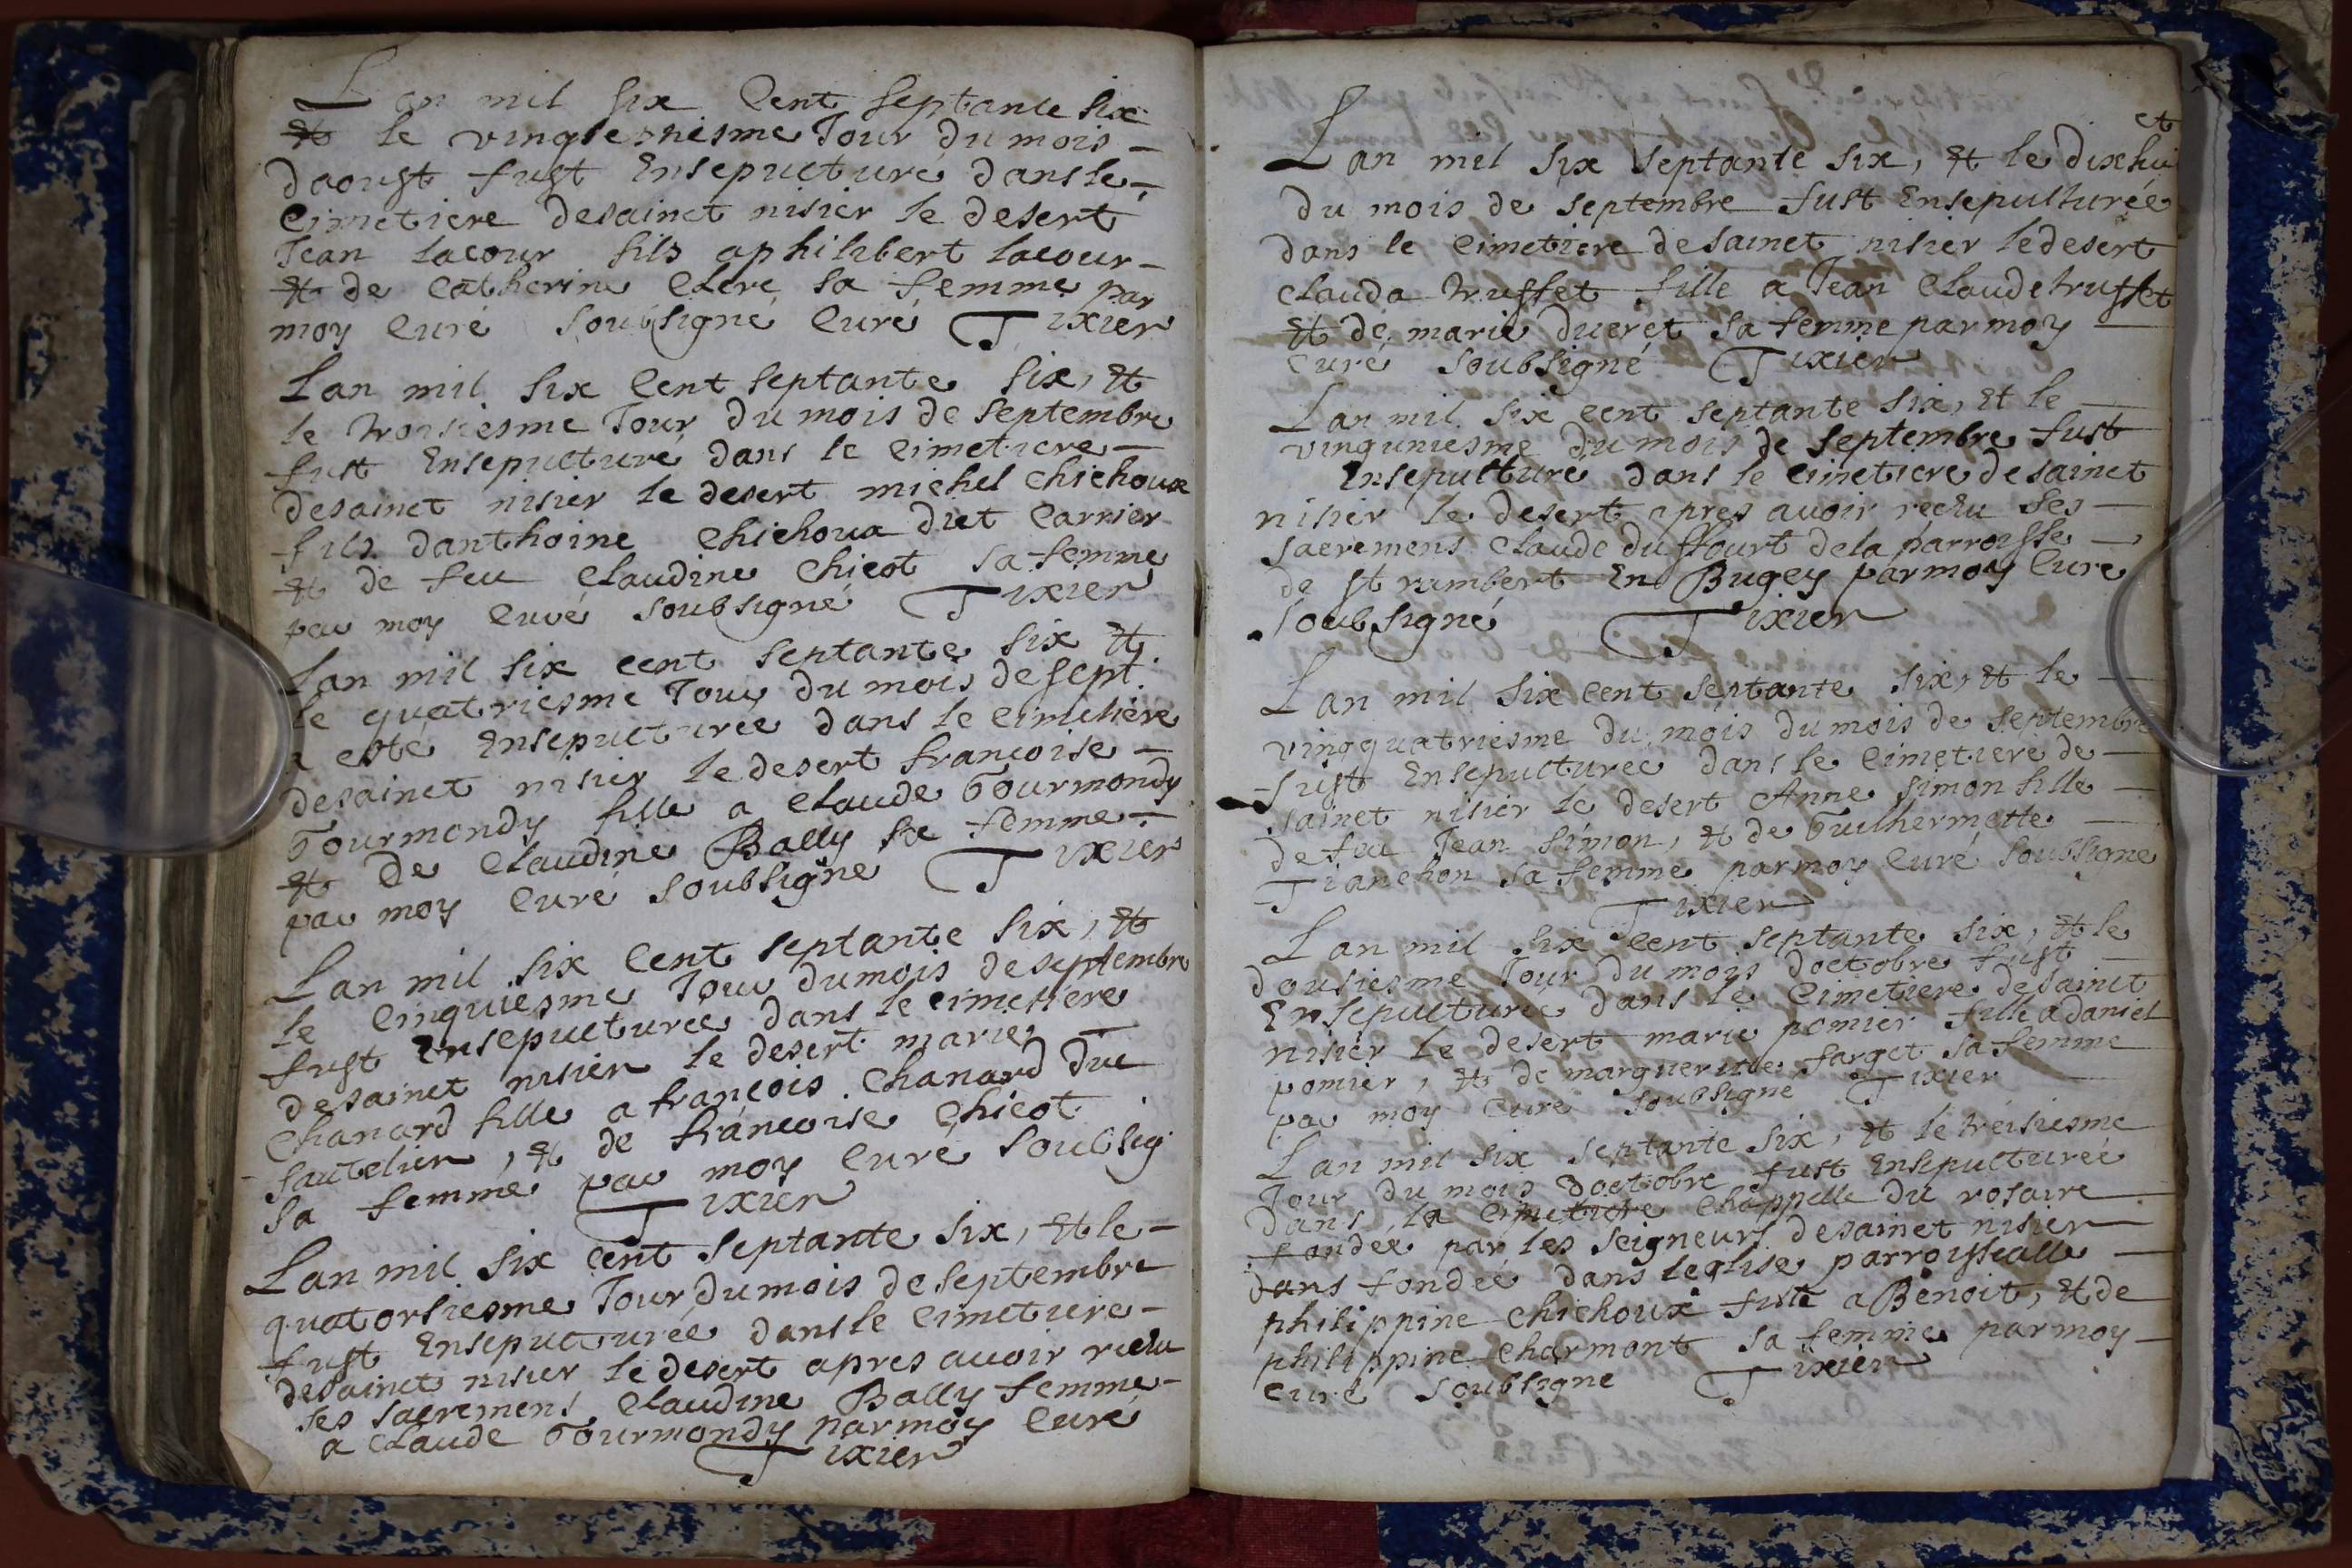 Lan mil six Cent septante six
et le vingtesnesme Jour du mois
daoust fust Ensepulturé dans le
Cimetiere desainct nisier le desert
Jean lacour fils aphilibert lacour
et de Catherine Clerc sa femme par
moy Curé soubsigné Curé Tixier
Lan mil six Cent septante six, et
le troisiesme Jour du mois de septembre
fust Ensepulturé dans le Cimetiere
desainct nisier le desert michel Chichoux
fils danthoine Chichoux dict Carrier
et de feu Claudine Chicot sa femme
par moy Curé soubsigné Tixier
Lan mil six cent septante six et
le quatriesme Jour du mois de sept.
a esté Ensepulturée dans le Cimetiere
desainct nisier le desert francoise
Gourmondy fille a Claude Gourmondy
et de Claudine Bally sa femme
par moy Curé soubsigné Tixier
Lan mil six Cent septante six, et
le Cinquiesme Jour dumois deseptembre
fust Ensepulturée dans le Cimetiere
desainct nisier le desert marie
Chanard fille a francois Chanard duc
sautelier, et de francoise Chicot
sa femme par moy Curé soubsig
Tixier
Lan mil six cent septante six, et le
quatorsiesme Jour du mois de septembre
fust Ensepulturée dans le Cimetiere
desainct nisier le desert apres avoir reclu
ses sacremens Claudine Bally femme
a Claude Gourmondy par moy Curé
Tixier
et
Lan mil six septante six, et le dixhui
du mois de septembre fust Ensepulturée
dans le Cimetiere desainct nisier ledesert
Clauda trusset fille a Jean Claude trusset
et de marie ducret sa femme par moy
Curé soubsigné Tixier
Lan mil six cent septante six, et le
vinguniesme du mois de septembre fust
Ensepulturé dans le Cimetiere desainct
nisier le desert apres avoir reclu ses
sacremens Claude duffourt dela parroisse
de st rambert En Bugey par moy Curé
soubsigné Tixier
Lan mil six Cent septante six, et le
vingquatriesme du mois du mois de septembre
fust Ensepulturée dans le Cimetiere de
sainct nisier le desert Anne simon fille
de feu Jean simon, et de Guilhermette
Tianchon sa femme par moy Curé soubsigné
Tixier
Lan mil six Cent septante six, et le
dousiesme Jour du mois doctobre fust
Ensepulturée dans le Cimetiere desainct
nisier le desert marie pomier fille a daniel
pomier, et de marguerite farget sa femme
par moy Curé soubsigné Tixier
Lan mil six septante six, et le treisiesme
Jour du mois doctobre fust Ensepulturée
dans la Cimetiere Chappelle du rosaire
fondée par les seigneurs desainct nisier
dans fondée dans leglise parroissialle
philippine Chichoux fille a Benoit, et de
philippine Charmont sa femme par moy
Curé soubsigné Tixier